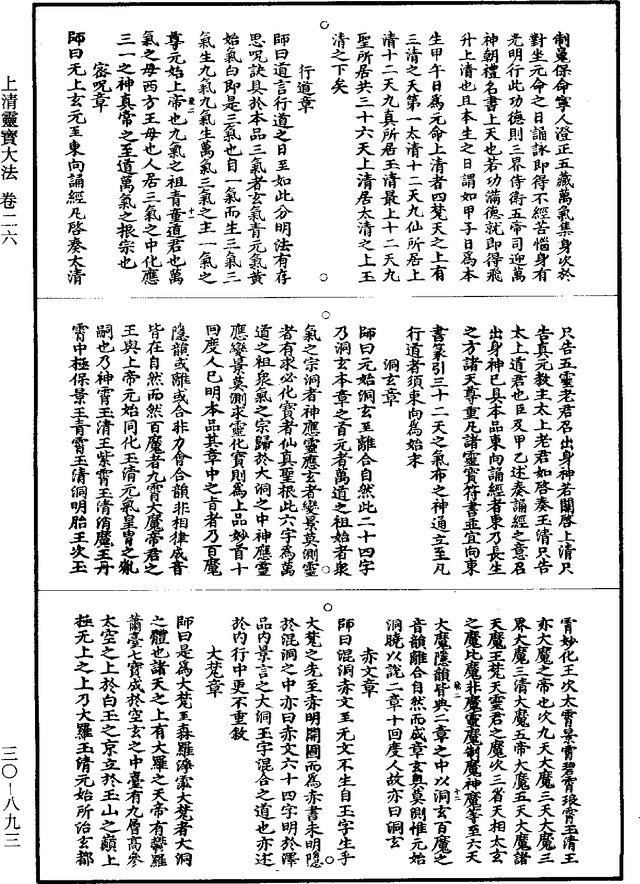 上清靈寶大法 卷二六
三〇—八九三
制魂保命寧人澄正五藏萬氣集身次於
對坐元命之日誦詠即得不經苦惱身有
光明行此功德則三界侍衛五帝司迎萬
神朝禮名書上天也若功滿德就即得飛
升上清也且本生之日謂如甲子日為本
生甲午日為元命上清者四梵天之上有
三清之天第一太清十二天九仙所居上
清十二天九真所居玉清最上十二天九
聖所居共三十六天上清居太清之上玉
清之下矣
行道章
師曰道言行道之日至如此分明法有存
思呪訣具於本品三氣者玄氣青元氣黃
始氣白即是三氣也自一氣而生三氣三
氣生九氣九氣生萬氣三氣之主一氣之
尊元始上帝也九氣之祖青童道君也萬
氣之母西方王母也人居三氣之中化應
三一之神真常之至道萬氣之根宗也
密呪章
師曰无上玄元至東向誦經凡啓奏太清
只告五靈老君召出身神若關啓上清只
告真元教主太上老君如啓奏玉清只告
太上道君也臣及甲乙述奏誦經之意召
出身神已具本品東向誦經者東乃長生
之方諸天尊重凡諸靈寶符書並宜向東
書篆引三十二天之氣布之神通立至凡
行道者須東向為始末
洞玄章
師曰元始洞玄至離合自然此二十四字
乃洞玄本章之首元者萬道之祖始者衆
氣之宗洞者神應靈應玄者變景莫測靈
者有求必化寶者仙真聖根此六字為萬
道之祖衆氣之宗歸於大洞之中神應靈
應變景莫測求靈化寶則為上品妙首十
回度人已明本品其章中之音者乃百魔
隱韻或離或合非力會合韻非相律成音
皆在自然而然百魔者九霄大魔帝君之
王與上帝元始同化玉清元氣皇胄之胤
嗣也乃神霄玉清王紫霄玉清消魔王丹
霄中極保景王青霄玉清洞明胎王次玉
霄妙化王次太霄景霄碧霄琅霄玉清王
亦大魔之帝也次九天大魔三天大魔三
界大魔三清大魔五帝大魔五天大魔諸
天魔王梵天靈君之魔次三省天相太玄
之魔比魔非魔靈魔制魔神魔等至六天
大魔隱韻皆典二章之中以洞玄百魔之
音韻離合自然而成章玄奧莫測惟元始
洞曉以說二章十回度人故亦曰洞玄
赤文章
師曰混洞赤文至元文不生自玉字生乎
大梵之先至赤明開圖而為赤書未明隱
於混洞之中亦曰赤文六十四字明於
品内景言之大洞玉字混合之道也亦述
於内行中更不重敘
大梵章
師曰是為大梵至森羅淨泓大梵者大洞
之體也諸天之上有大羅之天帝有欝羅
蕭臺七寶成於空玄之中臺有九層高參
太空之上於白玉之京立於玉山之巔上
極无上之上乃大羅玉清元始所治玄都